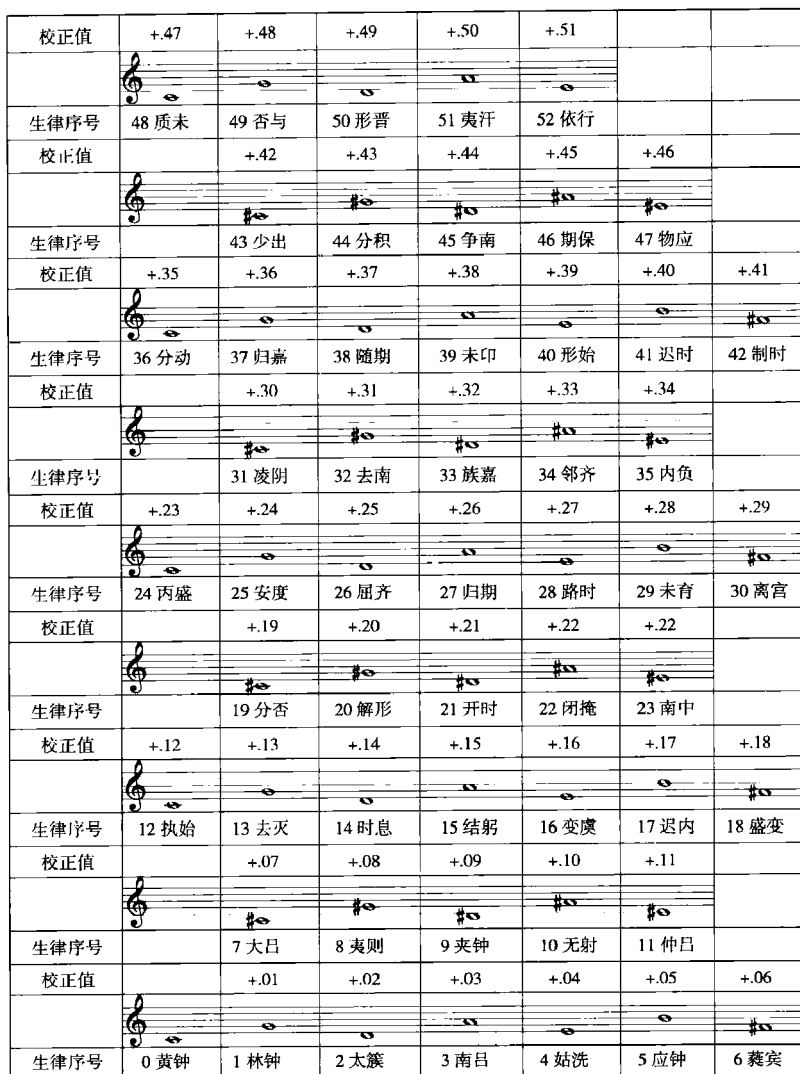 校正值 +.47 +.48 +.49 +.50 +.51
生律序号 48 质未 49 否与 50 形晋 51 夷汗 52 依行
校正值 +.42 +.43 +.44 +.45 +.46
生律序号 43 少出 44 分积 45 争南 46 期保 47 物应
校正值 +.35 +.36 +.37 +.38 +.39 +.40 +.41
生律序号 36 分动 37 归嘉 38 随期 39 未卬 40 形始 41 迟时 42 制时
校正值 +.30 +.31 +.32 +.33 +.34
生律序号 31 凌阴 32 去南 33 族嘉 34 邻齐 35 内负
校正值 +.23 +.24 +.25 +.26 +.27 +.28 +.29
生律序号 24 丙盛 25 安度 26 屈齐 27 归期 28 路时 29 未育 30 离宫
校正值 +.19 +.20 +.21 +.22 +.22
生律序号 19 分否 20 解形 21 开时 22 闭掩 23 南中
校正值 +.12 +.13 +.14 +.15 +.16 +.17 +.18
生律序号 12 执始 13 去灭 14 时息 15 结躬 16 变虞 17 迟内 18 盛变
校正值 +.07 +.08 +.09 +.10 +.11
生律序号 7 大吕 8 夷则 9 夹钟 10 无射 11 仲吕
校正值 +.01 +.02 +.03 +.04 +.05 +.06
生律序号 0 黄钟 1 林钟 2 太簇 3 南吕 4 姑洗 5 应钟 6 蕤宾